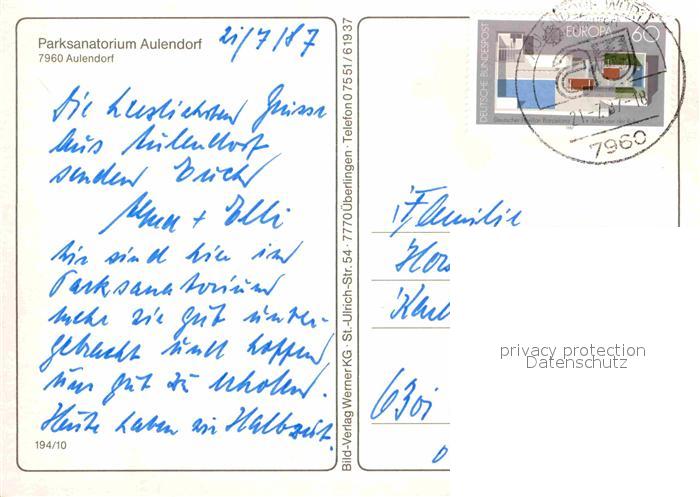 Parksanatorium Aulendorf
7960 Aulendorf
21/7/87
Die herzlichsten Grüsse
aus Aulendorf
senden Euch
+ Elli
Wir sind hier im
Parksanatorium
sehr gut unter-
gebracht und hoffen
uns gut zu erholen.
Heute haben wir Halbzeit.
194/10
Bild-Verlag Werner KG · St.-Ulrich-Str. 54 · 7770 Überlingen · Telefon 0 75 51 / 6 19 37
DEUTSCHE BUNDESPOST
EUROPA 60
Deutscher Pavillon Barcelona
21.-7.87-18
7960
Familie
6301
privacy protection
Datenschutz